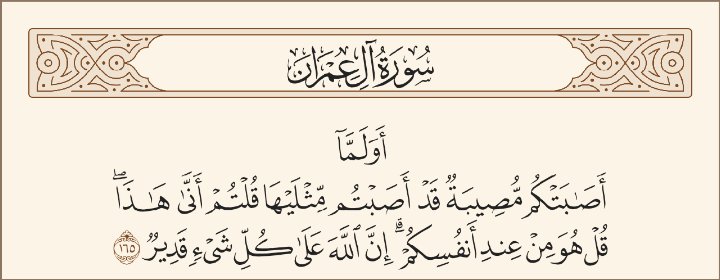 سُورَةُ آلِ عِمْرَانَ
أَوَلَمَّآ
أَصَٰبَتْكُم مُّصِيبَةٌ قَدْ أَصَبْتُم مِّثْلَيْهَا قُلْتُمْ أَنَّىٰ هَٰذَا ۖ
قُلْ هُوَ مِنْ عِندِ أَنفُسِكُمْ ۗ إِنَّ ٱللَّهَ عَلَىٰ كُلِّ شَىْءٍ قَدِيرٌ ١٦٥